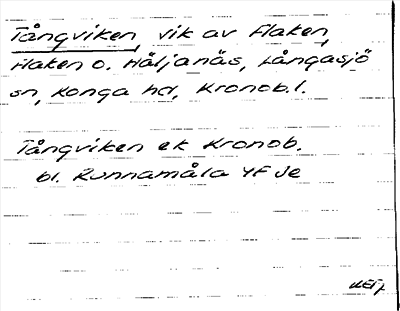 Tångviken, vik av Flaken,
Flaken o. Häljanäs, Långasjö
sn, Konga hd, Kronob.l.
Tångviken ek Kronob.
bl. Runnamåla 4F Je